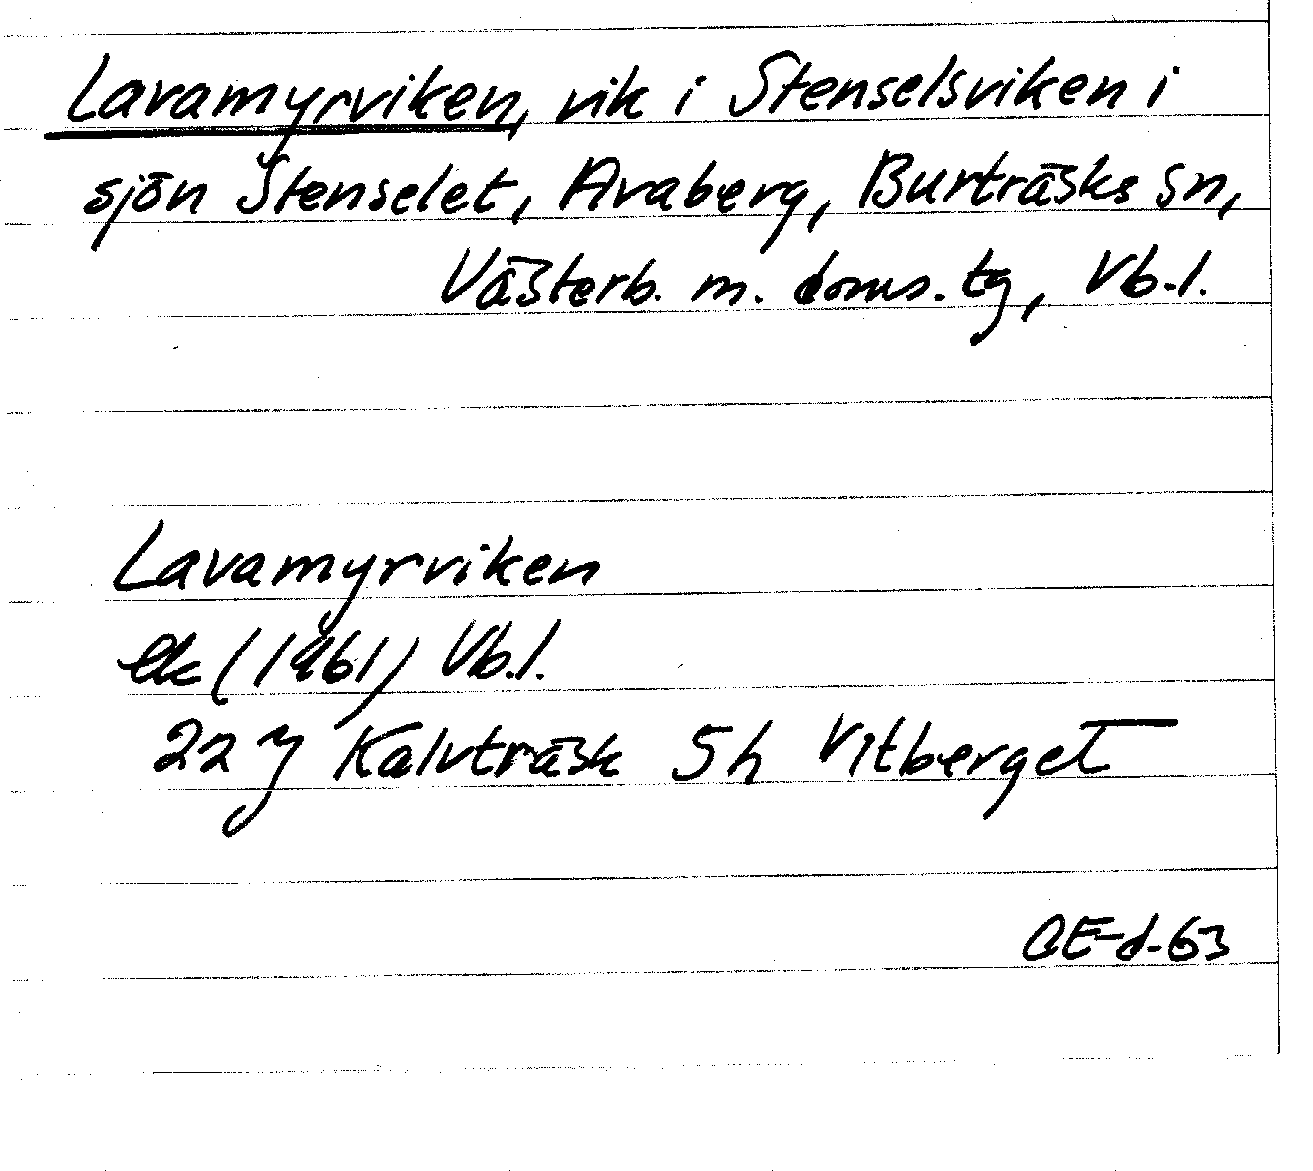 Lavamyrviken, vik i Stenselsviken i
sjön Stenselet, Avaberg, Burträsks sn,
Västerb. m. doms. tg, Vb.l.
Lavamyrviken
ek (1961) Vb.l.
22 J Kalvträsk 5 h Vitberget
OE-d-63